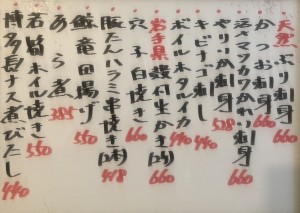 天然ぶり刺身 660
かつお刺身 660
活〆マツカワかれい刺身
やりいか刺身 528
キビナゴ刺し 440
ボイルホタルイカ 440
岩手県 殻付生かき(2ケ) 660
穴子白焼き 660
豚たんハラミ串焼き(2本) 418
鯨竜田揚げ 550
あら煮 385
若鶏ホイル焼き 550
博多長ナス煮びたし 440